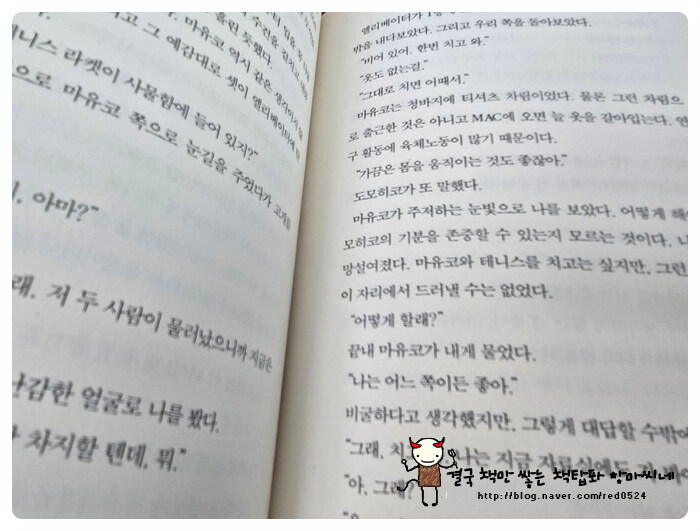 수건을
흘린 듯했다.
마유코 역시 같은 생각이
고 그 예감대로 셋이 엘리베이터에
테니스 라켓이 사물함에 들어 있지?"
으로 마유코 쪽으로 눈길을 주었다가 고개를
아마?"
래. 저 두 사람이 물러났으니까 지금은
난감한 얼굴로 나를 봤다.
차지할 텐데, 뭐."
엘리베이터가
밖을 내다보았다. 그리고 우리 쪽을 돌아보았다.
"비어 있어. 한번 치고 와."
"옷도 없는걸."
"그대로 치면 어때서."
마유코는 청바지에 티셔츠 차림이었다. 물론 그런 차림으
로 출근한 것은 아니고 MAC에 오면 늘 옷을 갈아입는다. 연
구 활동에 육체노동이 많기 때문이다.
"가끔은 몸을 움직이는 것도 좋잖아."
도모히코가 또 말했다.
마유코가 주저하는 눈빛으로 나를 보았다. 어떻게 해
모히코의 기분을 존중할 수 있는지 모르는 것이다. 나
망설여졌다. 마유코와 테니스를 치고는 싶지만, 그런
이 자리에서 드러낼 수는 없었다.
"어떻게 할래?"
끝내 마유코가 내게 물었다.
"나는 어느 쪽이든 좋아."
비굴하다고 생각했지만, 그렇게 대답할 수밖에
"그래, 치고 나는 지금 자료실에도
"아, 그래?
결국 책만 쌓는 책탑파 향마씨네
http://blog.naver.com/red0524